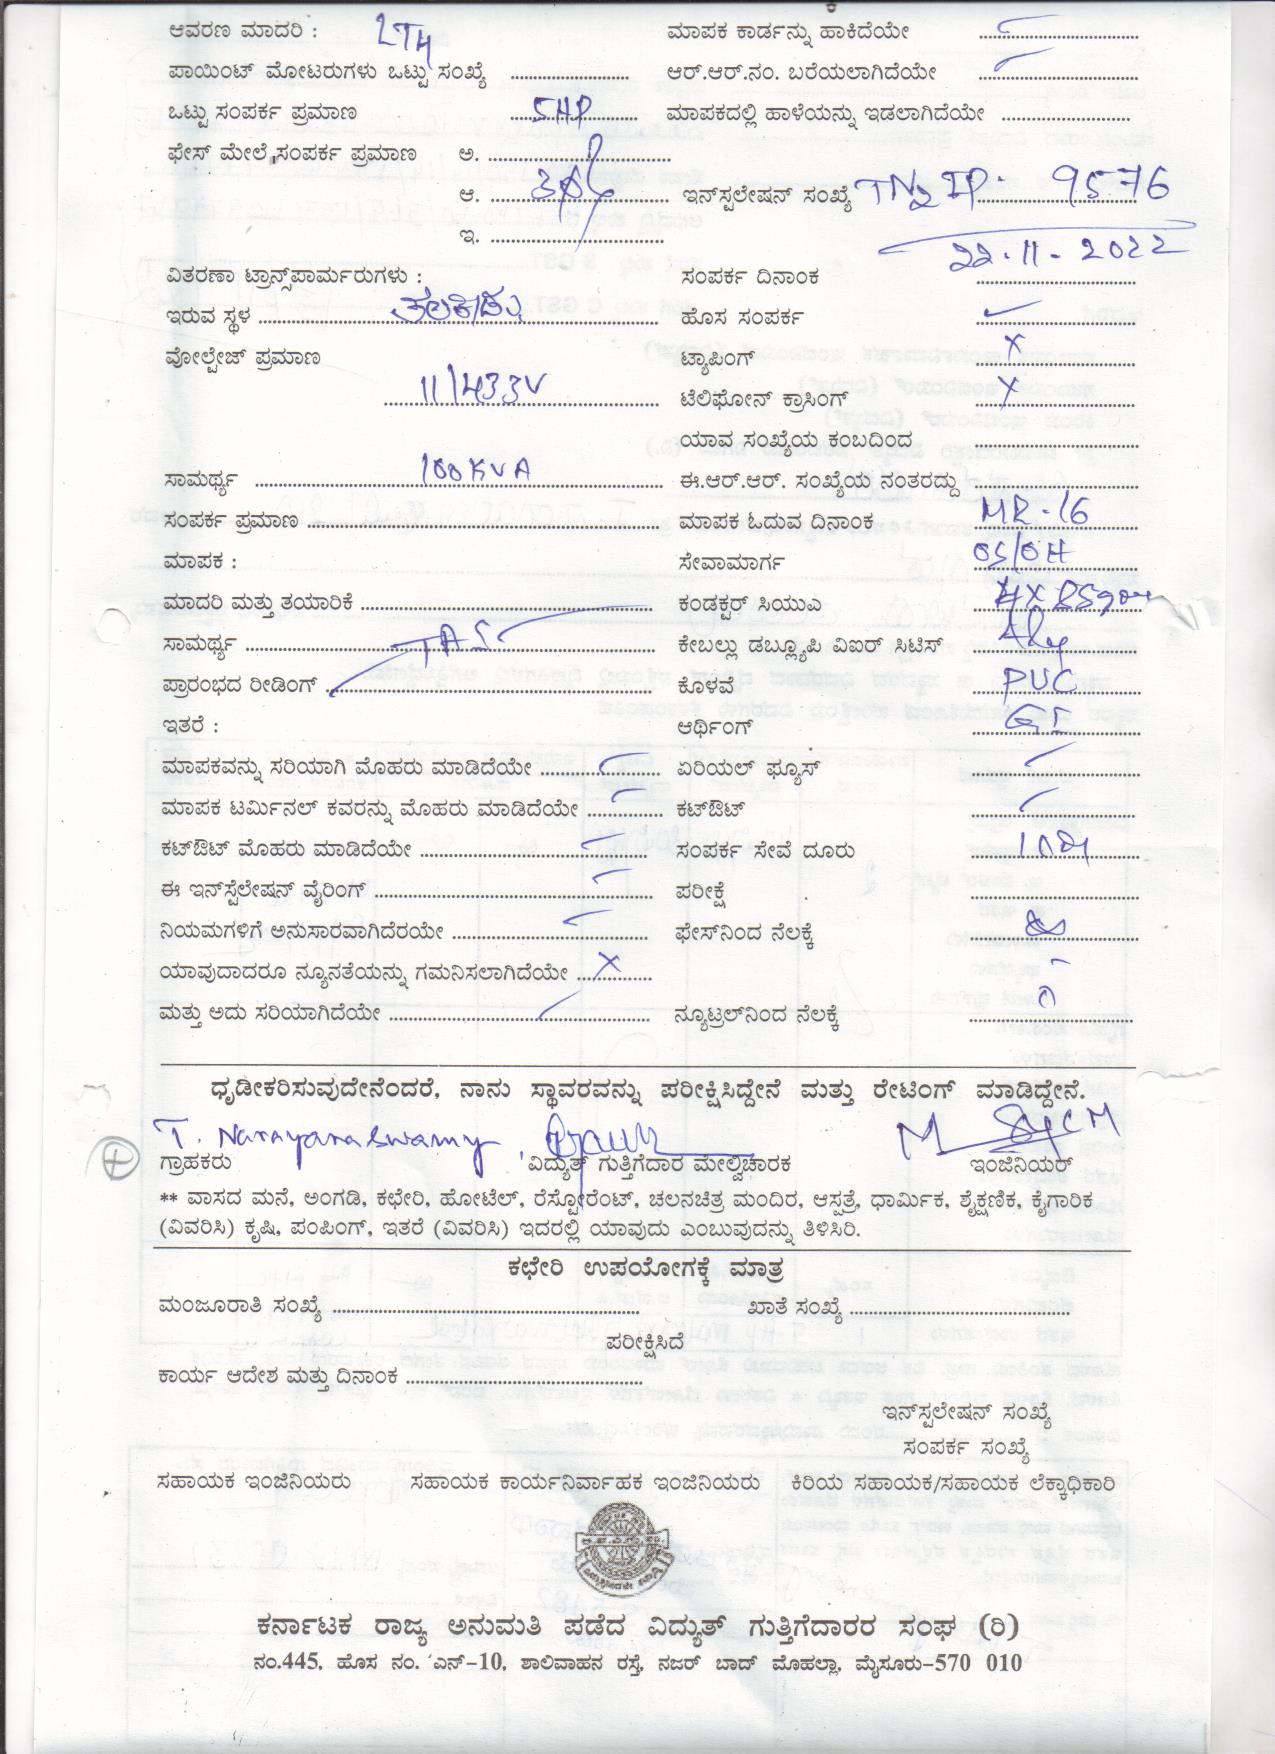 ಆವರಣ ಮಾದರಿ : LT4 ಮಾಪಕ ಕಾರ್ಡನ್ನು ಹಾಕಿದೆಯೇ
ಪಾಯಿಂಟ್ ಮೋಟರುಗಳು ಒಟ್ಟು ಸಂಖ್ಯೆ ಆರ್.ಆರ್.ನಂ. ಬರೆಯಲಾಗಿದೆಯೇ
ಒಟ್ಟು ಸಂಪರ್ಕ ಪ್ರಮಾಣ 5HP ಮಾಪಕದಲ್ಲಿ ಹಾಳೆಯನ್ನು ಇಡಲಾಗಿದೆಯೇ
ಫೇಸ್ ಮೇಲೆ ಸಂಪರ್ಕ ಪ್ರಮಾಣ ಅ.
ಆ. ಇನ್‌ಸ್ಟಲೇಷನ್ ಸಂಖ್ಯೆ TN2 IP: 9576
ಇ.
22-11-2022
ವಿತರಣಾ ಟ್ರಾನ್ಸ್‌ಪಾರ್ಮರುಗಳು : ಸಂಪರ್ಕ ದಿನಾಂಕ
ಇರುವ ಸ್ಥಳ ಹೊಸ ಸಂಪರ್ಕ ✓
ವೋಲ್ಟೇಜ್ ಪ್ರಮಾಣ ಟ್ಯಾಪಿಂಗ್ X
11/433V ಟೆಲಿಫೋನ್ ಕ್ರಾಸಿಂಗ್ X
ಯಾವ ಸಂಖ್ಯೆಯ ಕಂಬದಿಂದ
ಸಾಮರ್ಥ್ಯ 100KVA ಈ.ಆರ್.ಆರ್. ಸಂಖ್ಯೆಯ ನಂತರದ್ದು
ಸಂಪರ್ಕ ಪ್ರಮಾಣ ಮಾಪಕ ಓದುವ ದಿನಾಂಕ MR-16
ಮಾಪಕ : ಸೇವಾಮಾರ್ಗ OS/OH
ಮಾದರಿ ಮತ್ತು ತಯಾರಿಕೆ ಕಂಡಕ್ಟರ್ ಸಿಯುಎ
ಸಾಮರ್ಥ್ಯ ಕೇಬಲ್ಲು ಡಬ್ಲ್ಯೂಪಿ ವಿಐರ್ ಸಿಟಿಸ್
ಪ್ರಾರಂಭದ ರೀಡಿಂಗ್ ಕೊಳವೆ PVC
ಇತರೆ : ಆರ್ಥಿಂಗ್ GI
ಮಾಪಕವನ್ನು ಸರಿಯಾಗಿ ಮೊಹರು ಮಾಡಿದೆಯೇ ಏರಿಯಲ್ ಫ್ಯೂಸ್
ಮಾಪಕ ಟರ್ಮಿನಲ್ ಕವರನ್ನು ಮೊಹರು ಮಾಡಿದೆಯೇ ಕಟ್‌ಔಟ್
ಕಟ್‌ಔಟ್ ಮೊಹರು ಮಾಡಿದೆಯೇ ಸಂಪರ್ಕ ಸೇವೆ ದೂರು
ಈ ಇನ್‌ಸ್ಟೆಲೇಷನ್ ವೈರಿಂಗ್ ಪರೀಕ್ಷೆ
ನಿಯಮಗಳಿಗೆ ಅನುಸಾರವಾಗಿದೆರಯೇ ಫೇಸ್‌ನಿಂದ ನೆಲಕ್ಕೆ
ಯಾವುದಾದರೂ ನ್ಯೂನತೆಯನ್ನು ಗಮನಿಸಲಾಗಿದೆಯೇ X
ಮತ್ತು ಅದು ಸರಿಯಾಗಿದೆಯೇ ನ್ಯೂಟ್ರಲ್‌ನಿಂದ ನೆಲಕ್ಕೆ
ಧೃಡೀಕರಿಸುವುದೇನೆಂದರೆ, ನಾನು ಸ್ಥಾವರವನ್ನು ಪರೀಕ್ಷಿಸಿದ್ದೇನೆ ಮತ್ತು ರೇಟಿಂಗ್ ಮಾಡಿದ್ದೇನೆ.
T. Narayanaswamy
ಗ್ರಾಹಕರು ವಿದ್ಯುತ್ ಗುತ್ತಿಗೆದಾರ ಮೇಲ್ವಿಚಾರಕ ಇಂಜಿನಿಯರ್
** ವಾಸದ ಮನೆ, ಅಂಗಡಿ, ಕಛೇರಿ, ಹೋಟೆಲ್, ರೆಸ್ಟೋರೆಂಟ್, ಚಲನಚಿತ್ರ ಮಂದಿರ, ಆಸ್ಪತ್ರೆ, ಧಾರ್ಮಿಕ, ಶೈಕ್ಷಣಿಕ, ಕೈಗಾರಿಕ
(ವಿವರಿಸಿ) ಕೃಷಿ, ಪಂಪಿಂಗ್, ಇತರೆ (ವಿವರಿಸಿ) ಇದರಲ್ಲಿ ಯಾವುದು ಎಂಬುವುದನ್ನು ತಿಳಿಸಿರಿ.
ಕಛೇರಿ ಉಪಯೋಗಕ್ಕೆ ಮಾತ್ರ
ಮಂಜೂರಾತಿ ಸಂಖ್ಯೆ ಖಾತೆ ಸಂಖ್ಯೆ
ಪರೀಕ್ಷಿಸಿದೆ
ಕಾರ್ಯ ಆದೇಶ ಮತ್ತು ದಿನಾಂಕ
ಇನ್‌ಸ್ಟಲೇಷನ್ ಸಂಖ್ಯೆ
ಸಂಪರ್ಕ ಸಂಖ್ಯೆ
ಸಹಾಯಕ ಇಂಜಿನಿಯರು ಸಹಾಯಕ ಕಾರ್ಯನಿರ್ವಾಹಕ ಇಂಜಿನಿಯರು ಕಿರಿಯ ಸಹಾಯಕ/ಸಹಾಯಕ ಲೆಕ್ಕಾಧಿಕಾರಿ
ಕರ್ನಾಟಕ ರಾಜ್ಯ ಅನುಮತಿ ಪಡೆದ ವಿದ್ಯುತ್ ಗುತ್ತಿಗೆದಾರರ ಸಂಘ (ರಿ)
ನಂ.445, ಹೊಸ ನಂ. ಎನ್-10, ಶಾಲಿವಾಹನ ರಸ್ತೆ, ನಜರ್ ಬಾದ್ ಮೊಹಲ್ಲಾ, ಮೈಸೂರು-570 010